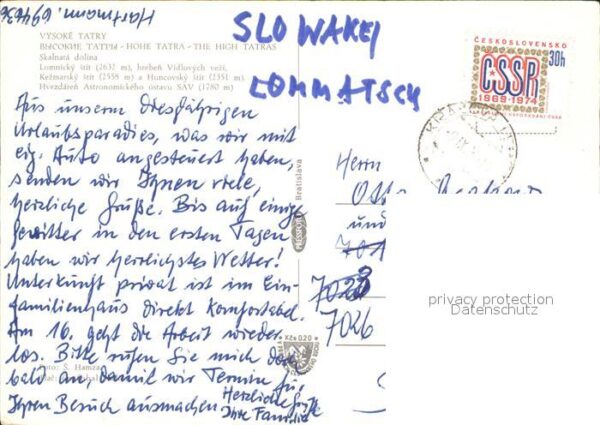 Hartmann. 69443%
SLOWAKEI
LOMMATSCH
VYSOKÉ TATRY
ВЫСОКИЕ ТАТРЫ - HOHE TATRA - THE HIGH TATRAS
Skalnatá dolina
Lomnický štít (2632 m), hrebeň Vidlových veží,
Kežmarský štít (2558 m) a Huncovský štít (2351 m).
Hvezdáreň Astronomického ústavu SAV (1780 m)
ČESKOSLOVENSKO
30h
ČSSR
1969-1974
Aus unserm diesjährigen
Urlaubsparadies, was wir mit
eig. Auto angesteuert haben,
senden wir Ihnen viele,
herzliche Grüße. Bis auf einige
Gewitter in den ersten Tagen
haben wir herrlichstes Wetter!
Unterkunft privat ist im Ein-
familienhaus direkt komfortabel.
Am 16. geht die Arbeit wieder
los. Bitte rufen Sie mich dann
bald an, damit wir Termin für
Ihren Besuch ausmachen
Herzliche Grüße
Ihre Familie
Foto: Š. Hamza
Bratislava
PRESSFOTO
Kčs 0,20
Herrn
Otto
und
701
7028
7026
privacy protection
Datenschutz